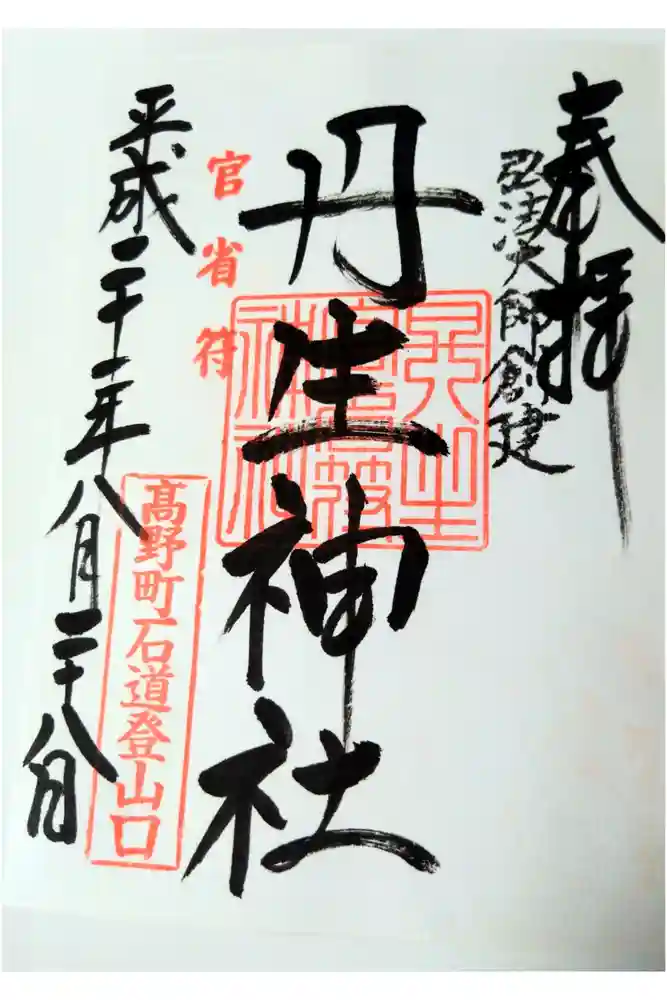 奉拝
弘法大師創建
丹生神社
官省符
髙野町石道登山口
平成二十一年八月二十八日